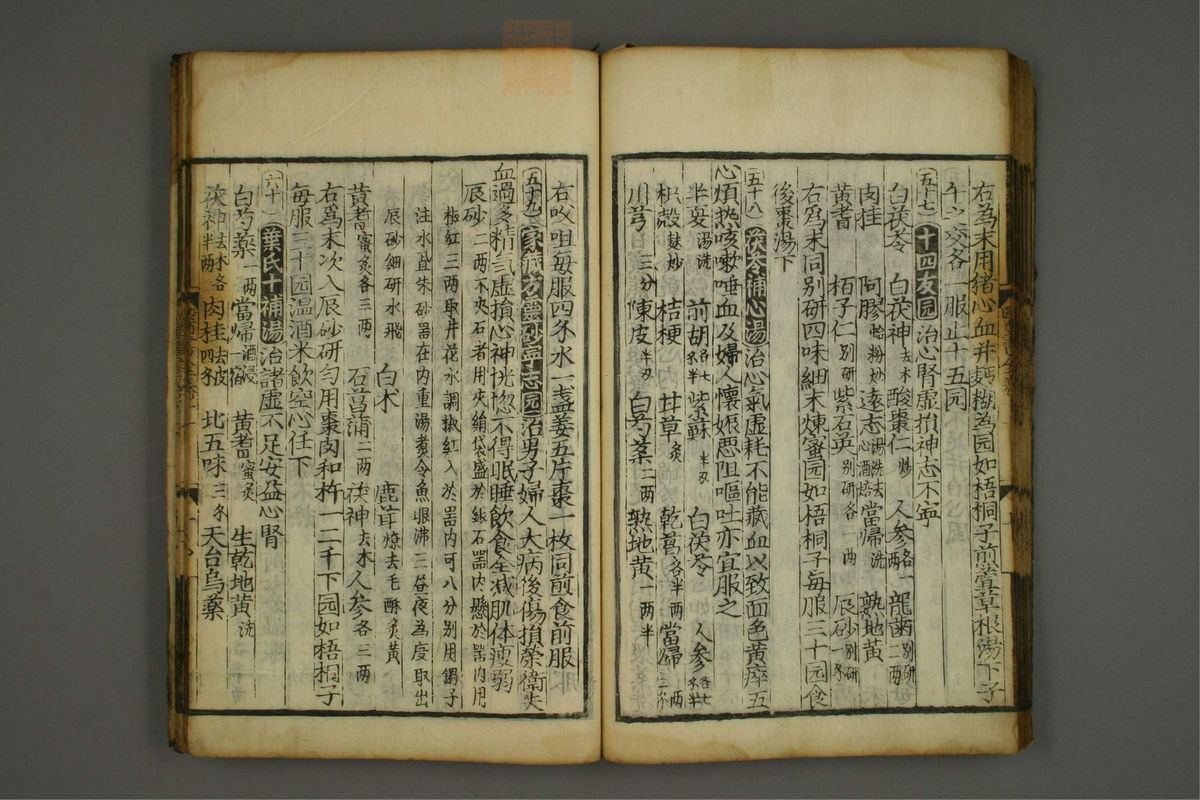 右為末用猪心血并麪糊為园如梧桐子煎萱草根湯下子
午之交各一服止十五园
五十七 十四友园 治心腎虛損神志不寧
白茯苓 白茯神去木 酸棗仁炒 人參各一兩 龍齒別研二兩
肉桂 阿膠蛤粉炒 遠志湯洗去心酒焙 當歸洗 熟地黄
黄耆 栢子仁別研 紫石英別研各一兩 辰砂別研一分
右為末同別研四味細末煉蜜园如梧桐子每服三十园食
後棗湯下
五十八 茯苓補心湯 治心氣虛耗不能藏血以致面色黄瘁五
心煩熱咳嗽唾血及婦人懷娠惡阻嘔吐亦宜服之
半夏湯洗 前胡各七分半 紫蘇半兩 白茯苓 人參各七分半
枳殼麸炒 桔梗 甘草炙 乾葛各半兩 當歸
川芎三分 陳皮半兩 白芍藥二兩 熟地黄一兩半
右㕮咀每服四分水一盞姜五片棗一枚同煎食前服
五十九 家藏方靈砂寧志园 治男子婦人大病後傷損榮衛失
血過多精氣虛損心神恍惚不得眠睡飲食全减肌体瘦弱
辰砂二兩不夾石者用夾絹袋盛於銀石器内懸於器内用
椒紅三兩取井花水調椒紅入於器内可八分別用鍋子
注水置朱砂器在内重湯煑令魚眼沸三昼夜為度取出
辰砂細研水飛 白术 鹿茸燎去毛酥炙黄
黄耆蜜炙各三兩 石菖蒲二兩 茯神去木 人參各三兩
右為末次入辰砂研匀用棗肉和杵一二千下园如梧桐子
每服三十园温酒米飲空心任下
六十 葉氏十補湯 治諸虛不足安益心腎
白芍藥一兩 當歸酒浸一宿 黄耆蜜炙 生乾地黄洗
茯神去木各半兩 肉桂去皮四分 北五味三分 天台烏藥